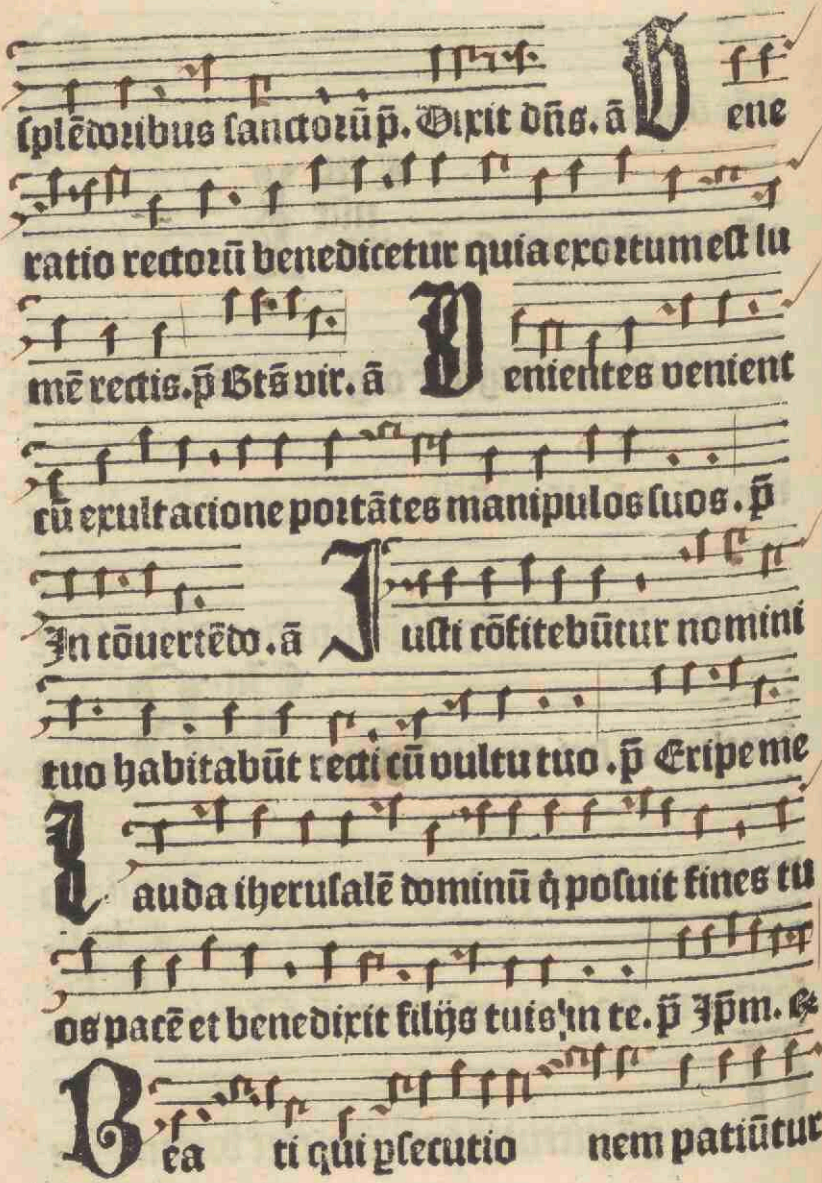 ſplēdoribus ſanctorū p̄. Dixit dn̄s. ā Gene
ratio rectorū benedicetur quia exortum eſt lu
mē rectis. p̄ Bt̄s vir. ā Venientes venient
cū exultacione portātes manipulos ſuos. p̄
In cōuertēdo. ā Iuſti cōfitebūtur nomini
tuo habitabūt recti cū vultu tuo. p̄ Eripe me
Lauda iheruſalē dominū q̇ poſuit fines tu
os pacē et benedixit filijs tuis in te. p̄ Ip̄m.
Beati qui ꝑſecutionem patiūtur